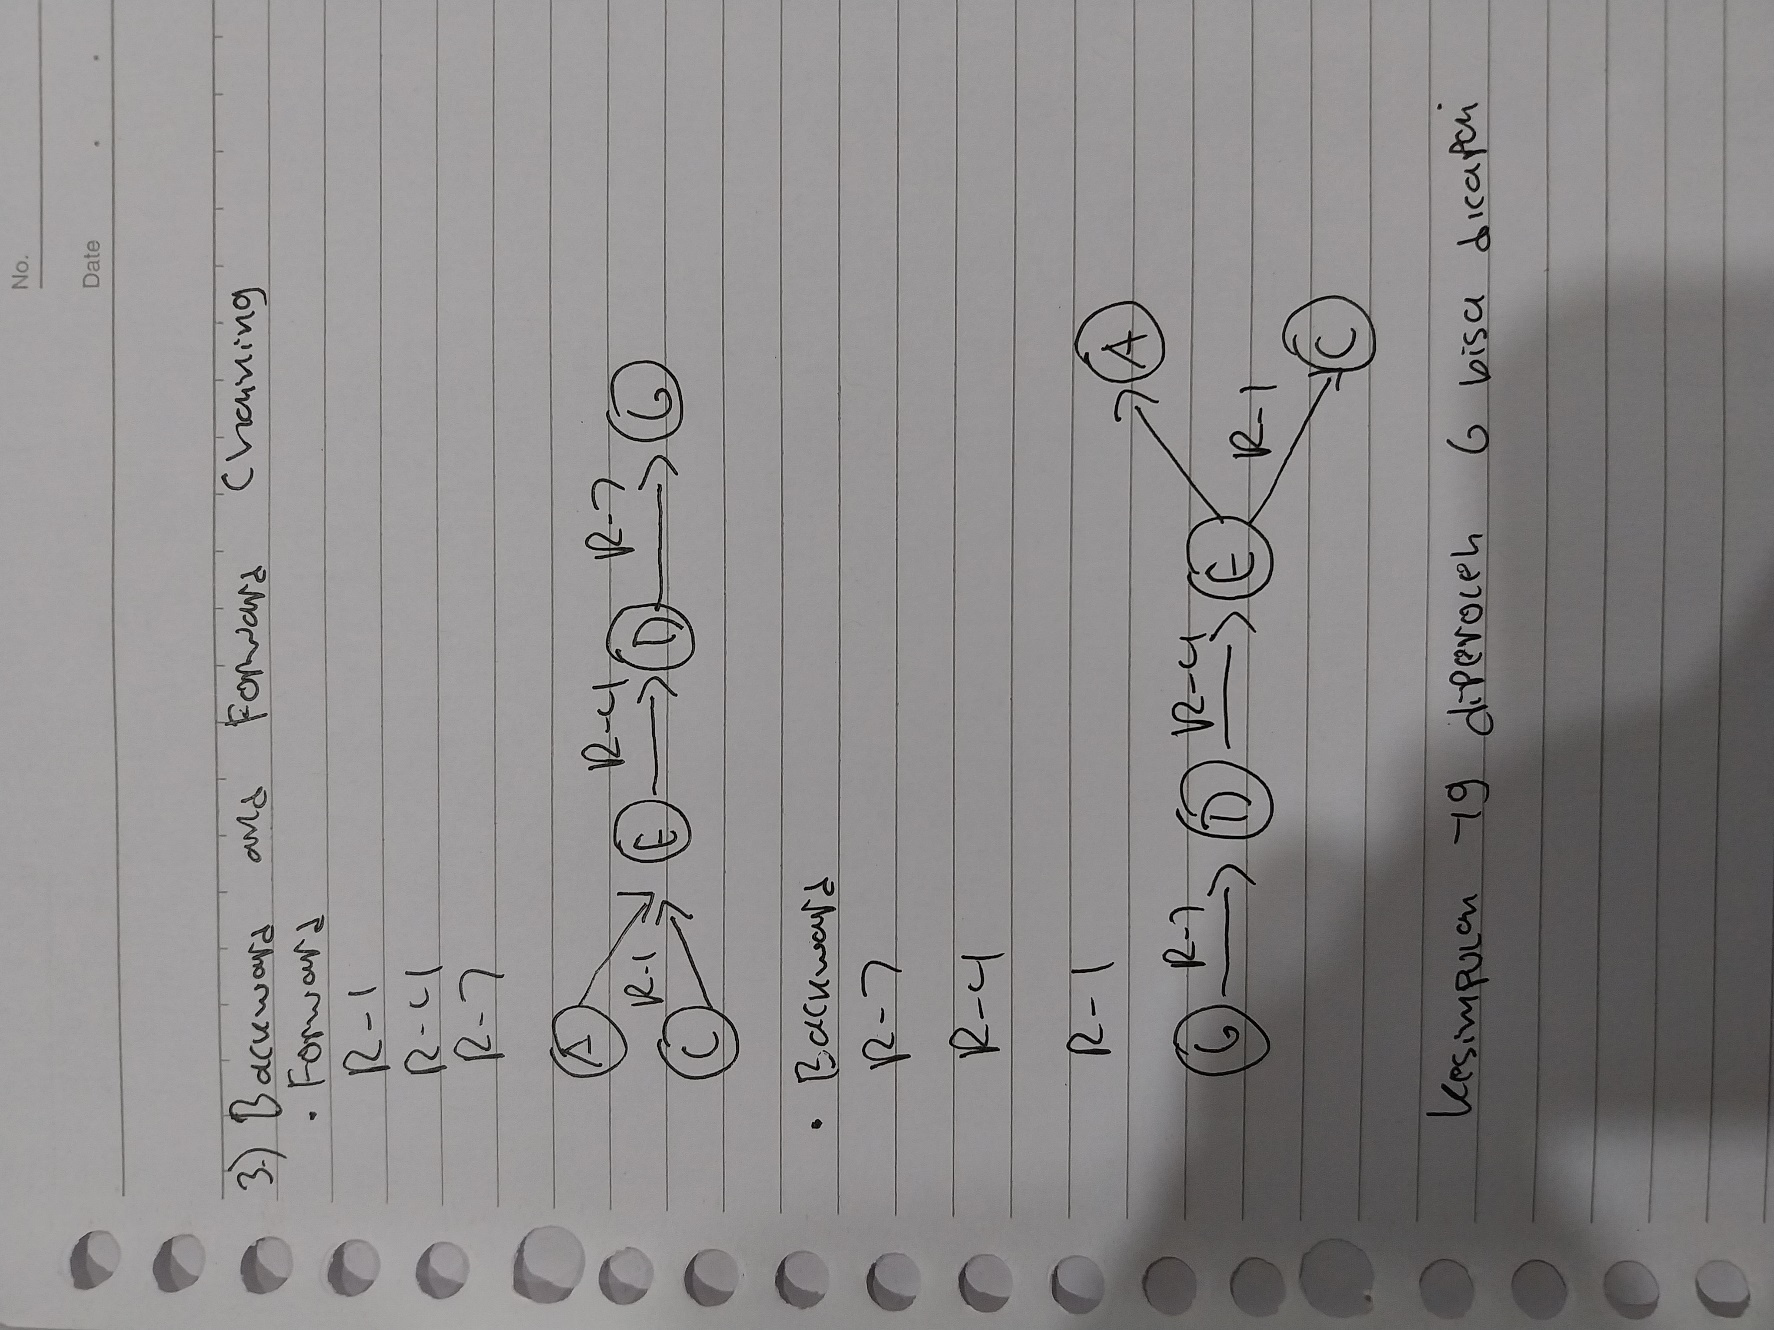 No.
Date . .
3.) Backward and Forward Chaining
• Forward
R-1
R-4
R-7
A
R-1
C
E
R-4
D
R-7
G
• Backward
R-7
R-4
R-1
G
R-7
D
R-4
E
A
R-1
C
Kesimpulan yg diperoleh G bisa dicapai